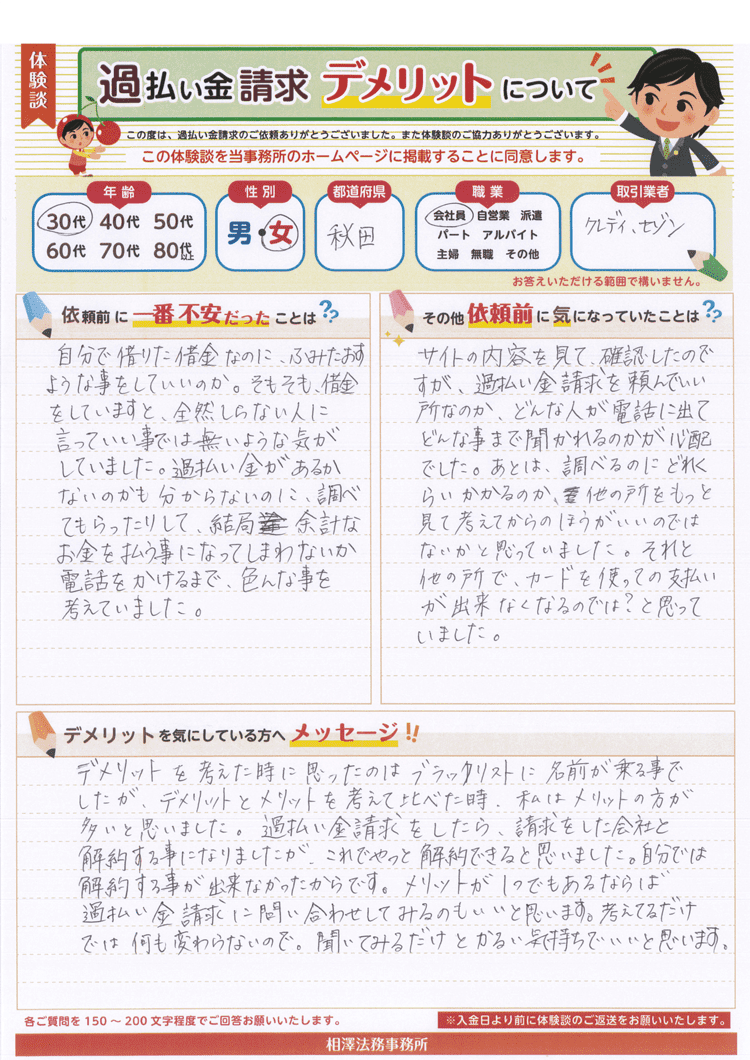 体験談
過払い金請求 デメリットについて
この度は、過払い金請求のご依頼ありがとうございました。また体験談のご協力ありがとうございます。
この体験談を当事務所のホームページに掲載することに同意します。
年齢
30代 40代 50代
60代 70代 80代以上
性別
男・女
都道府県
秋田
職業
会社員 自営業 派遣
パート アルバイト
主婦 無職 その他
取引業者
クレディ、セゾン
お答えいただける範囲で構いません。
依頼前に一番不安だったことは??
自分で借りた借金なのに、ふみたおす
ような事をしていいのか。そもそも、借金
をしていますと、全然しらない人に
言っていい事では無いような気が
していました。過払い金があるか
ないのかも分からないのに、調べ
てもらったりして、結局余計な
お金を払う事になってしまわないか
電話をかけるまで、色んな事を
考えていました。
その他依頼前に気になっていたことは??
サイトの内容を見て、確認したので
すが、過払い金請求を頼んでいい
所なのか、どんな人が電話に出て
どんな事まで聞かれるのかが心配
でした。あとは、調べるのにどれく
らいかかるのか、他の所をもっと
見て考えてからのほうがいいのでは
ないかと思っていました。それと
他の所で、カードを使っての支払い
が出来なくなるのでは?と思って
いました。
デメリットを気にしている方へメッセージ!!
デメリットを考えた時に思ったのはブラックリストに名前が乗る事で
したが、デメリットとメリットを考えて比べた時、私はメリットの方が
多いと思いました。過払い金請求をしたら、請求をした会社と
解約する事になりましたが、これでやっと解約できると思いました。自分では
解約する事が出来なかったからです。メリットが1つでもあるならば
過払い金請求に問い合わせしてみるのもいいと思います。考えてるだけ
では何も変わらないので。聞いてみるだけとかるい気持ちでいいと思います。
各ご質問を150～200文字程度でご回答お願いいたします。
※入金日より前に体験談のご返送をお願いいたします。
相澤法務事務所